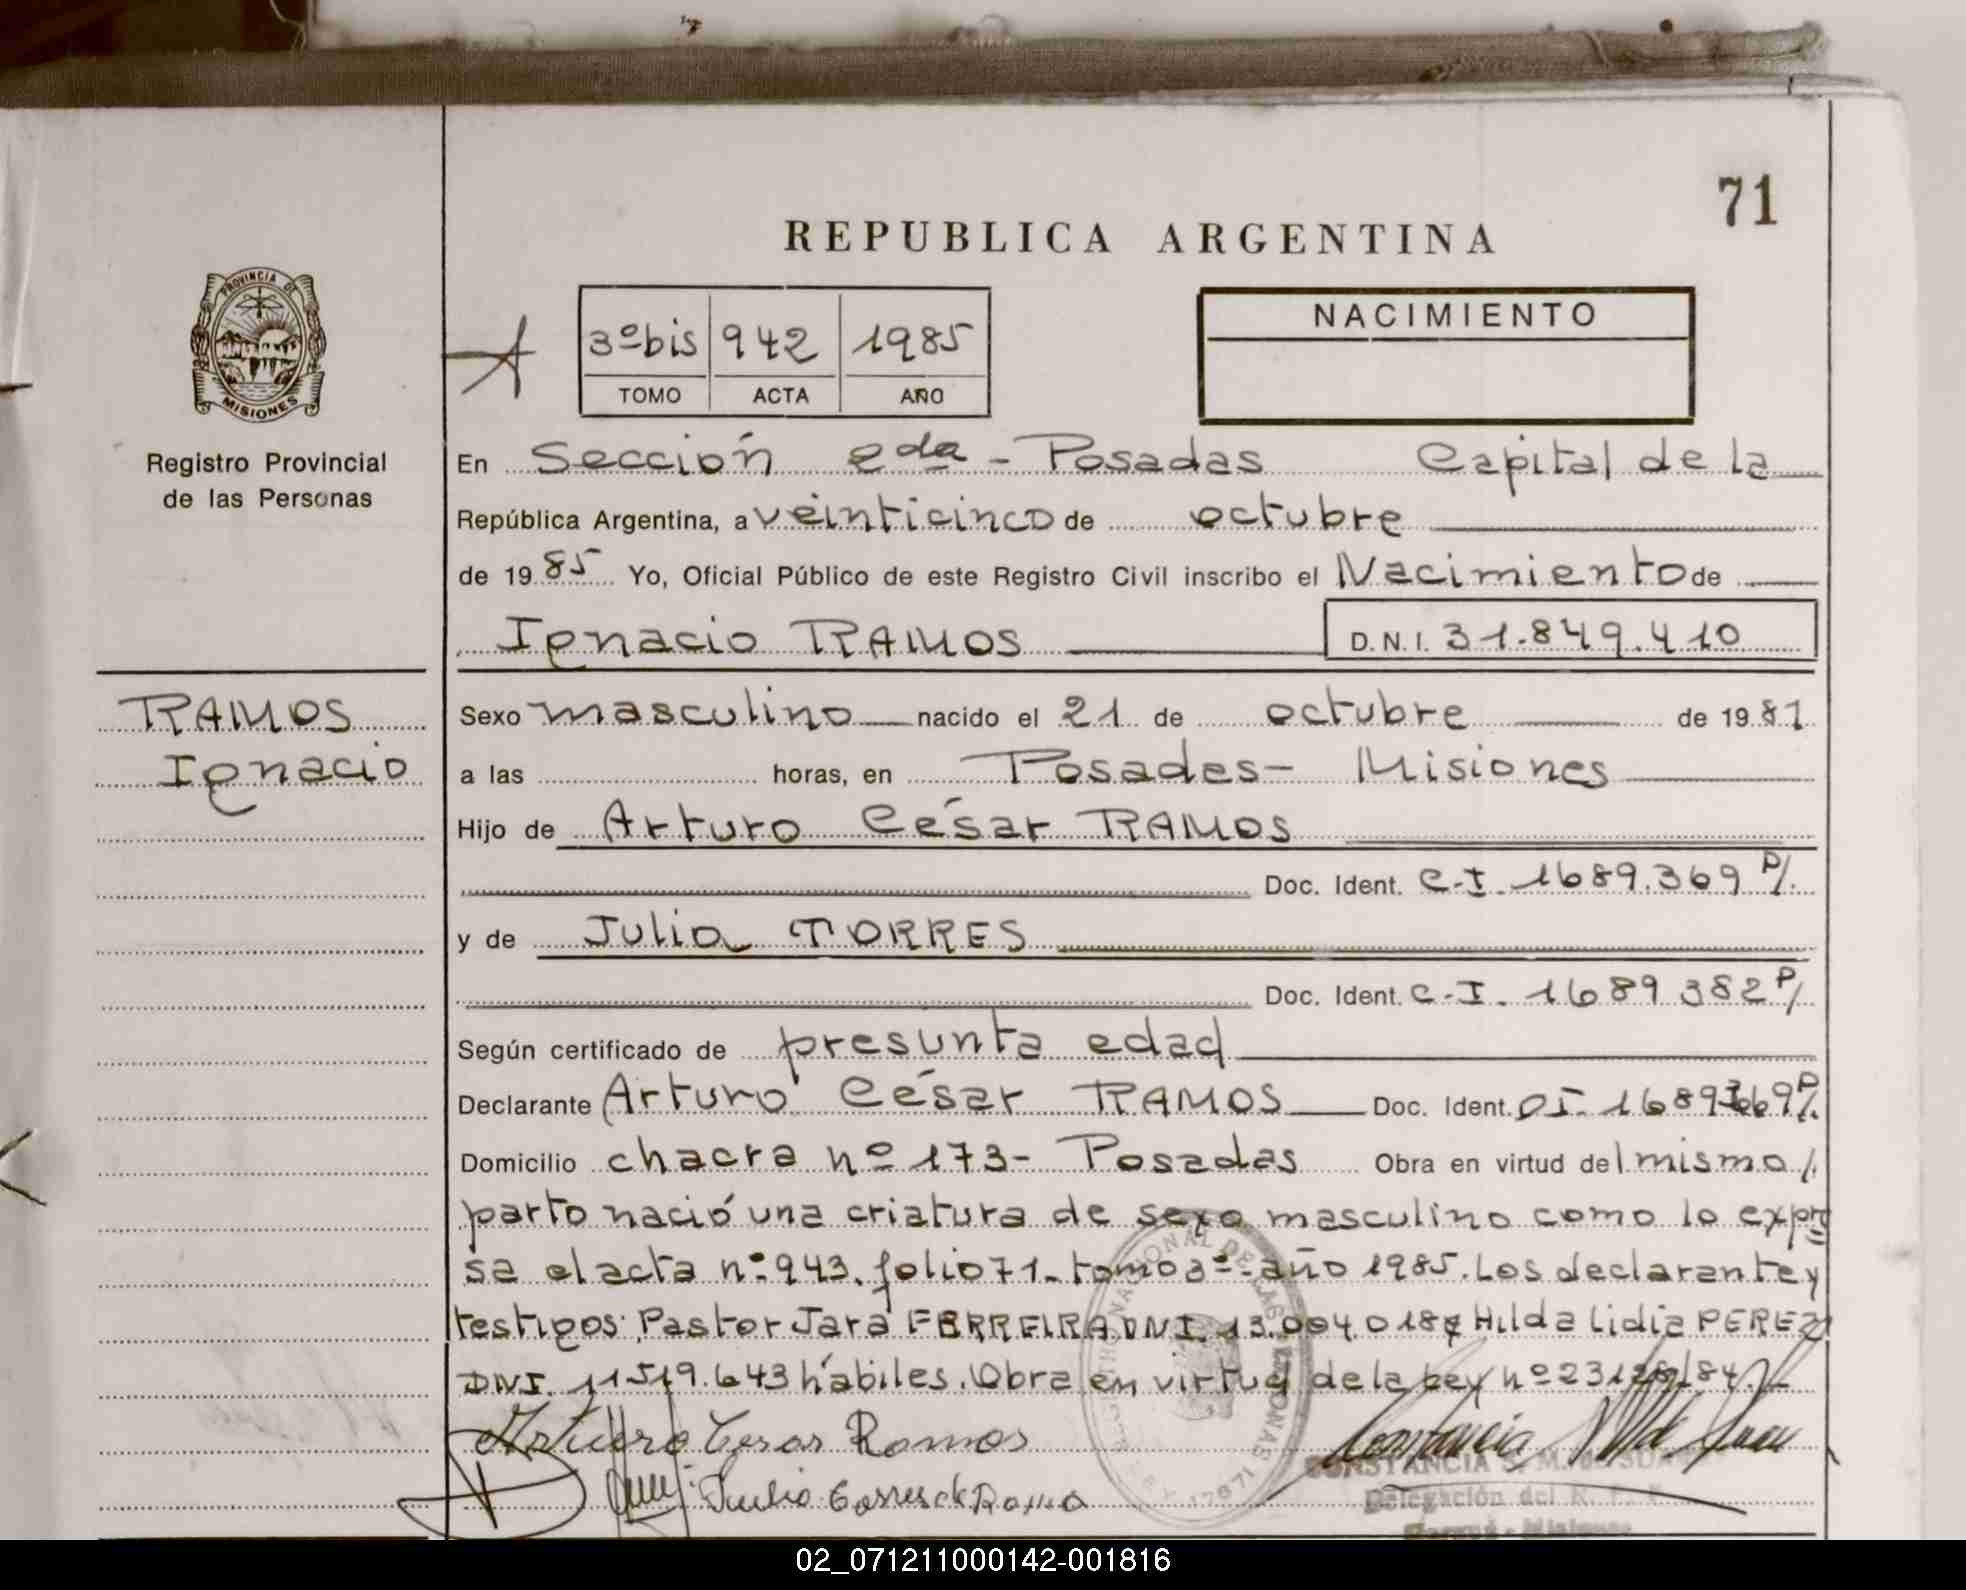 71
REPUBLICA ARGENTINA
PROVINCIA DE
MISIONES
Registro Provincial
de las Personas
3º bis 942 1985
TOMO ACTA AÑO
NACIMIENTO
En Sección 2da - Posadas Capital de la
República Argentina, a veinticinco de octubre
de 1985 Yo, Oficial Público de este Registro Civil inscribo el Nacimiento de
Ignacio RAMOS D.N.I. 31.849.410
RAMOS
Ignacio
Sexo masculino nacido el 21 de octubre de 1981
a las horas, en Posadas - Misiones
Hijo de Arturo César RAMOS
Doc. Ident. C.I. 1689.369 P/.
y de Julia TORRES
Doc. Ident. C.I. 1689 382 P/.
Según certificado de presunta edad
Declarante Arturo César RAMOS Doc. Ident. CI. 1689369 P/.
Domicilio chacra nº 173- Posadas Obra en virtud del mismo /.
parto nació una criatura de sexo masculino como lo expre
sa el acta nº 943. folio 71- tomo 3º- año 1985. Los declarante y
testigos: Pastor Jara FERREIRA DNI. 13.004.018 y Hilda Lidia PEREZ
DNI. 11519.643 hábiles. Obra en virtud de la Ley nº 23128/84.
Arturo Cesar Ramos
Julia Torres de Ramos
CONSTANCIA S. M. de
Delegación del R. P. P.
Misiones
02_071211000142-001816